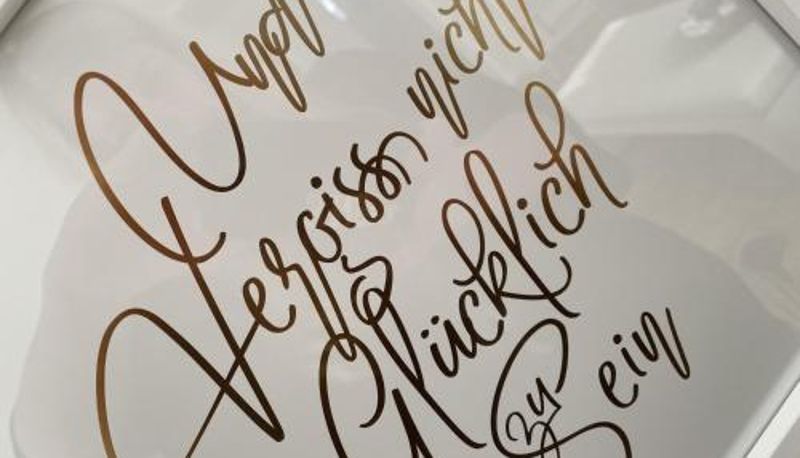 Und
Vergiss nicht
Glücklich
zu Sein